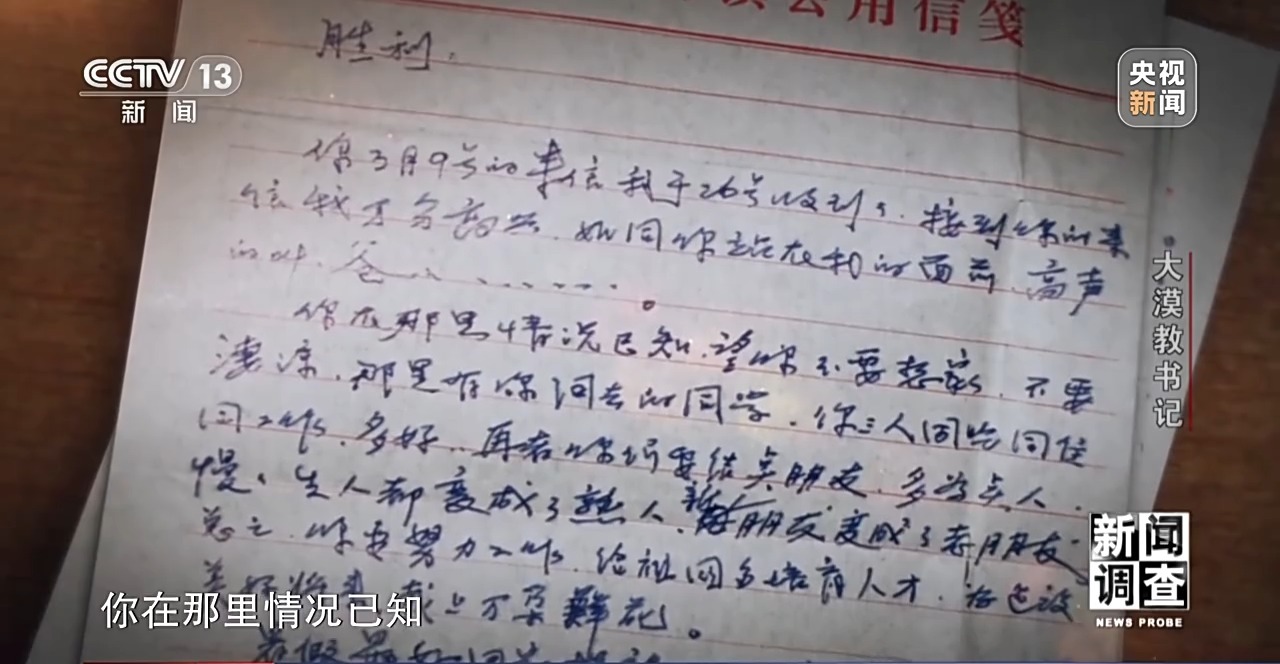 公用信笺
CCTV 13
新闻
央视
新闻
胜利:
你3月9号的来信我于26号收到了.接到你的来
信我万分高兴.如同你站在我的面前.高声
的叫.爸、、......。
你在那里情况已知.望你不要想家.不要
凄凉.那里有你同去的同学.你三人同吃同住
同工作.多好.再者你还要结美朋友.多为点人.
慢、生人都变成了熟人.新朋友变成了老朋友.
总之.你要努力工作.给祖国多培育人才.为建设
美好将来献上万朵鲜花。
暑假最好回来
大漠教书记
新闻
调查
NEWS PROBE
你在那里情况已知